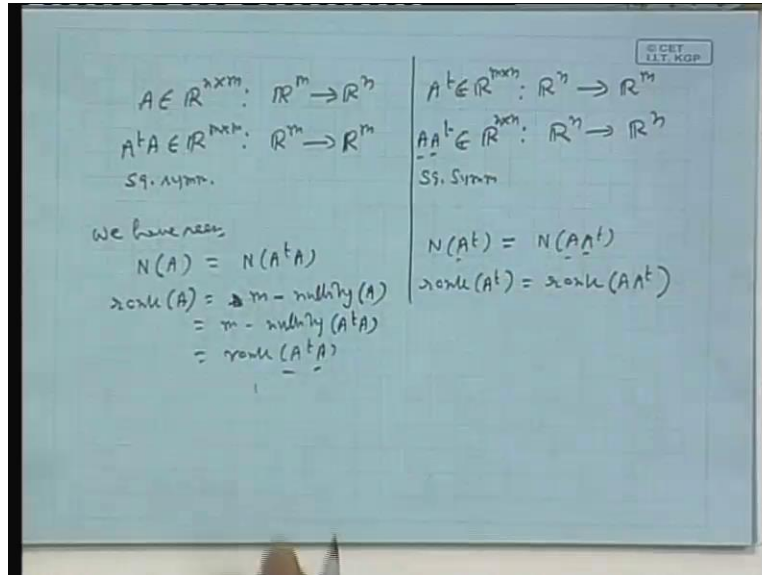 © CET
I.I.T. KGP
A ∈ ℝⁿˣᵐ : ℝᵐ → ℝⁿ
AᵗA ∈ ℝᵐˣᵐ : ℝᵐ → ℝᵐ
Sq. symm.
we have seen,
N(A) = N(AᵗA)
rank(A) = m - nullity(A)
= m - nullity(AᵗA)
= rank(AᵗA)
Aᵗ ∈ ℝᵐˣⁿ : ℝⁿ → ℝᵐ
AAᵗ ∈ ℝⁿˣⁿ : ℝⁿ → ℝⁿ
Sq. Symm
N(Aᵗ) = N(AAᵗ)
rank(Aᵗ) = rank(AAᵗ)